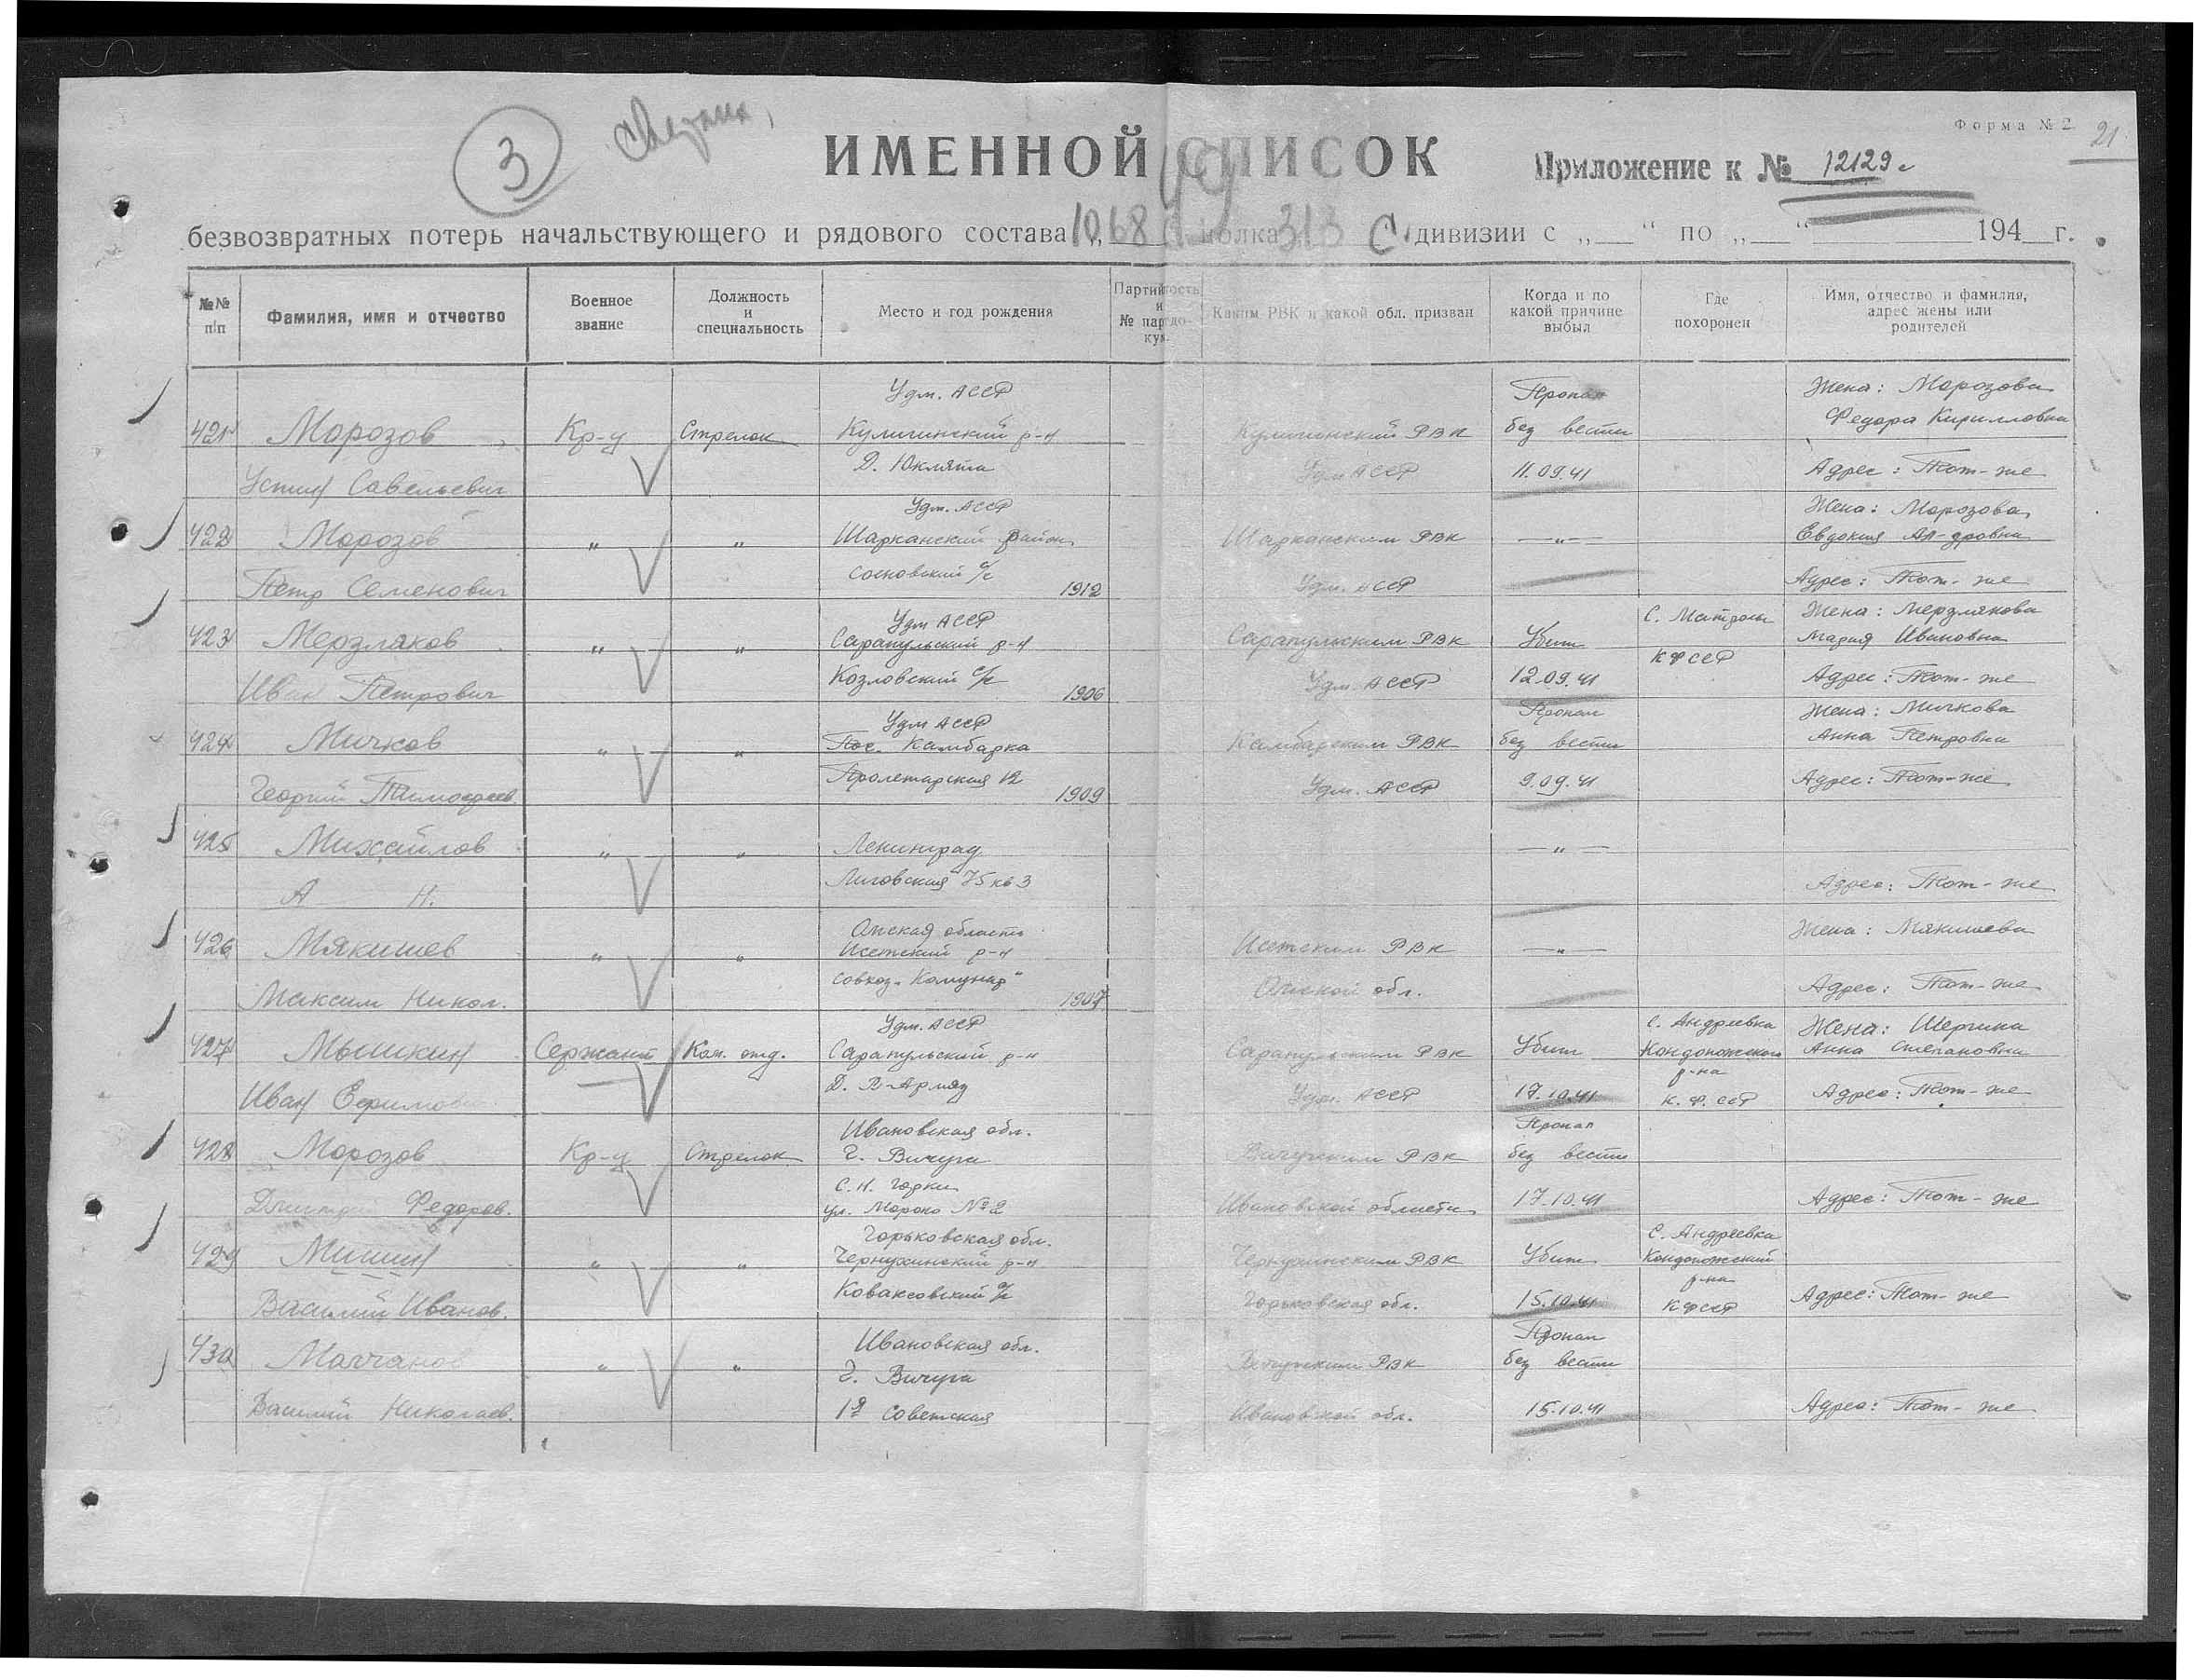 Форма № 2
21
3
ИМЕННОЙ СПИСОК
Приложение к № 12129с
безвозвратных потерь начальствующего и рядового состава „1068 с. полка 313 С. дивизии с „__“ по „__“ 194__г.
№№ п/п
Фамилия, имя и отчество
Военное звание
Должность и специальность
Место и год рождения
Партийность и № партдокум.
Каким РВК и какой обл. призван
Когда и по какой причине выбыл
Где похоронен
Имя, отчество и фамилия, адрес жены или родителей
Удм. АССР Пропал Жена: Морозова
421 Морозов Кр-ц Стрелок Кулигинский р-н Кулигинский РВК без вести Федора Кирилловна
Устин Савельевич Д. Юклята Удм АССР 11.09.41 Адрес: Тот-же
Удм. АССР Жена: Морозова
422 Морозов " " Шарканский район Шарканским РВК —"— Евдокия Ал-дровна
Петр Семенович Сосновский с/с 1912 Удм. АССР Адрес: Тот-же
Удм АССР С. Матросы Жена: Мерзлякова
423 Мерзляков " " Сарапульский р-н Сарапульским РВК Убит КФССР Мария Ивановна
Иван Петрович Козловский с/с 1906 Удм. АССР 12.09.41 Адрес: Тот-же
Удм АССР Пропал Жена: Мичкова
424 Мичков " " Пос. Камбарка Камбарским РВК без вести Анна Петровна
Георгий Тимофеев. Пролетарская 12 1909 Удм. АССР 9.09.41 Адрес: Тот-же
425 Михайлов " " Ленинград —"—
А Н. Лиговская 75 кв 3 Адрес: Тот-же
Омская область Жена: Мякишева
426 Мякишев " " Исетский р-н Исетским РВК —"—
Максим Никол. совхоз „Комунар“ 1907 Омской обл. Адрес: Тот-же
Удм. АССР С. Андреевка Жена: Шергина
427 Мышкин Сержант Ком. отд. Сарапульский р-н Сарапульским РВК Убит Кондопожского р-на Анна Степановна
Иван Ефимович Д. Удм. АССР 17.10.41 К.Ф.ССР Адрес: Тот-же
Ивановская обл. Пропал
428 Морозов Кр-ц Стрелок г. Вичуга Вичугским РВК без вести
Дмитрий Федоров. С.Н. Горки Ивановской области 17.10.41 Адрес: Тот-же
ул. № 2
Горьковская обл. С. Андреевка
429 Мишин " " Чернухинский р-н Чернухинским РВК Убит Кондопожский р-на
Василий Иванов. Коваксовский с/с Горьковская обл. 15.10.41 КФССР Адрес: Тот-же
Ивановская обл. Пропал
430 Молчанов " " г. Вичуга Вичугским РВК без вести
Василий Николаев. 1я Советская Ивановской обл. 15.10.41 Адрес: Тот-же